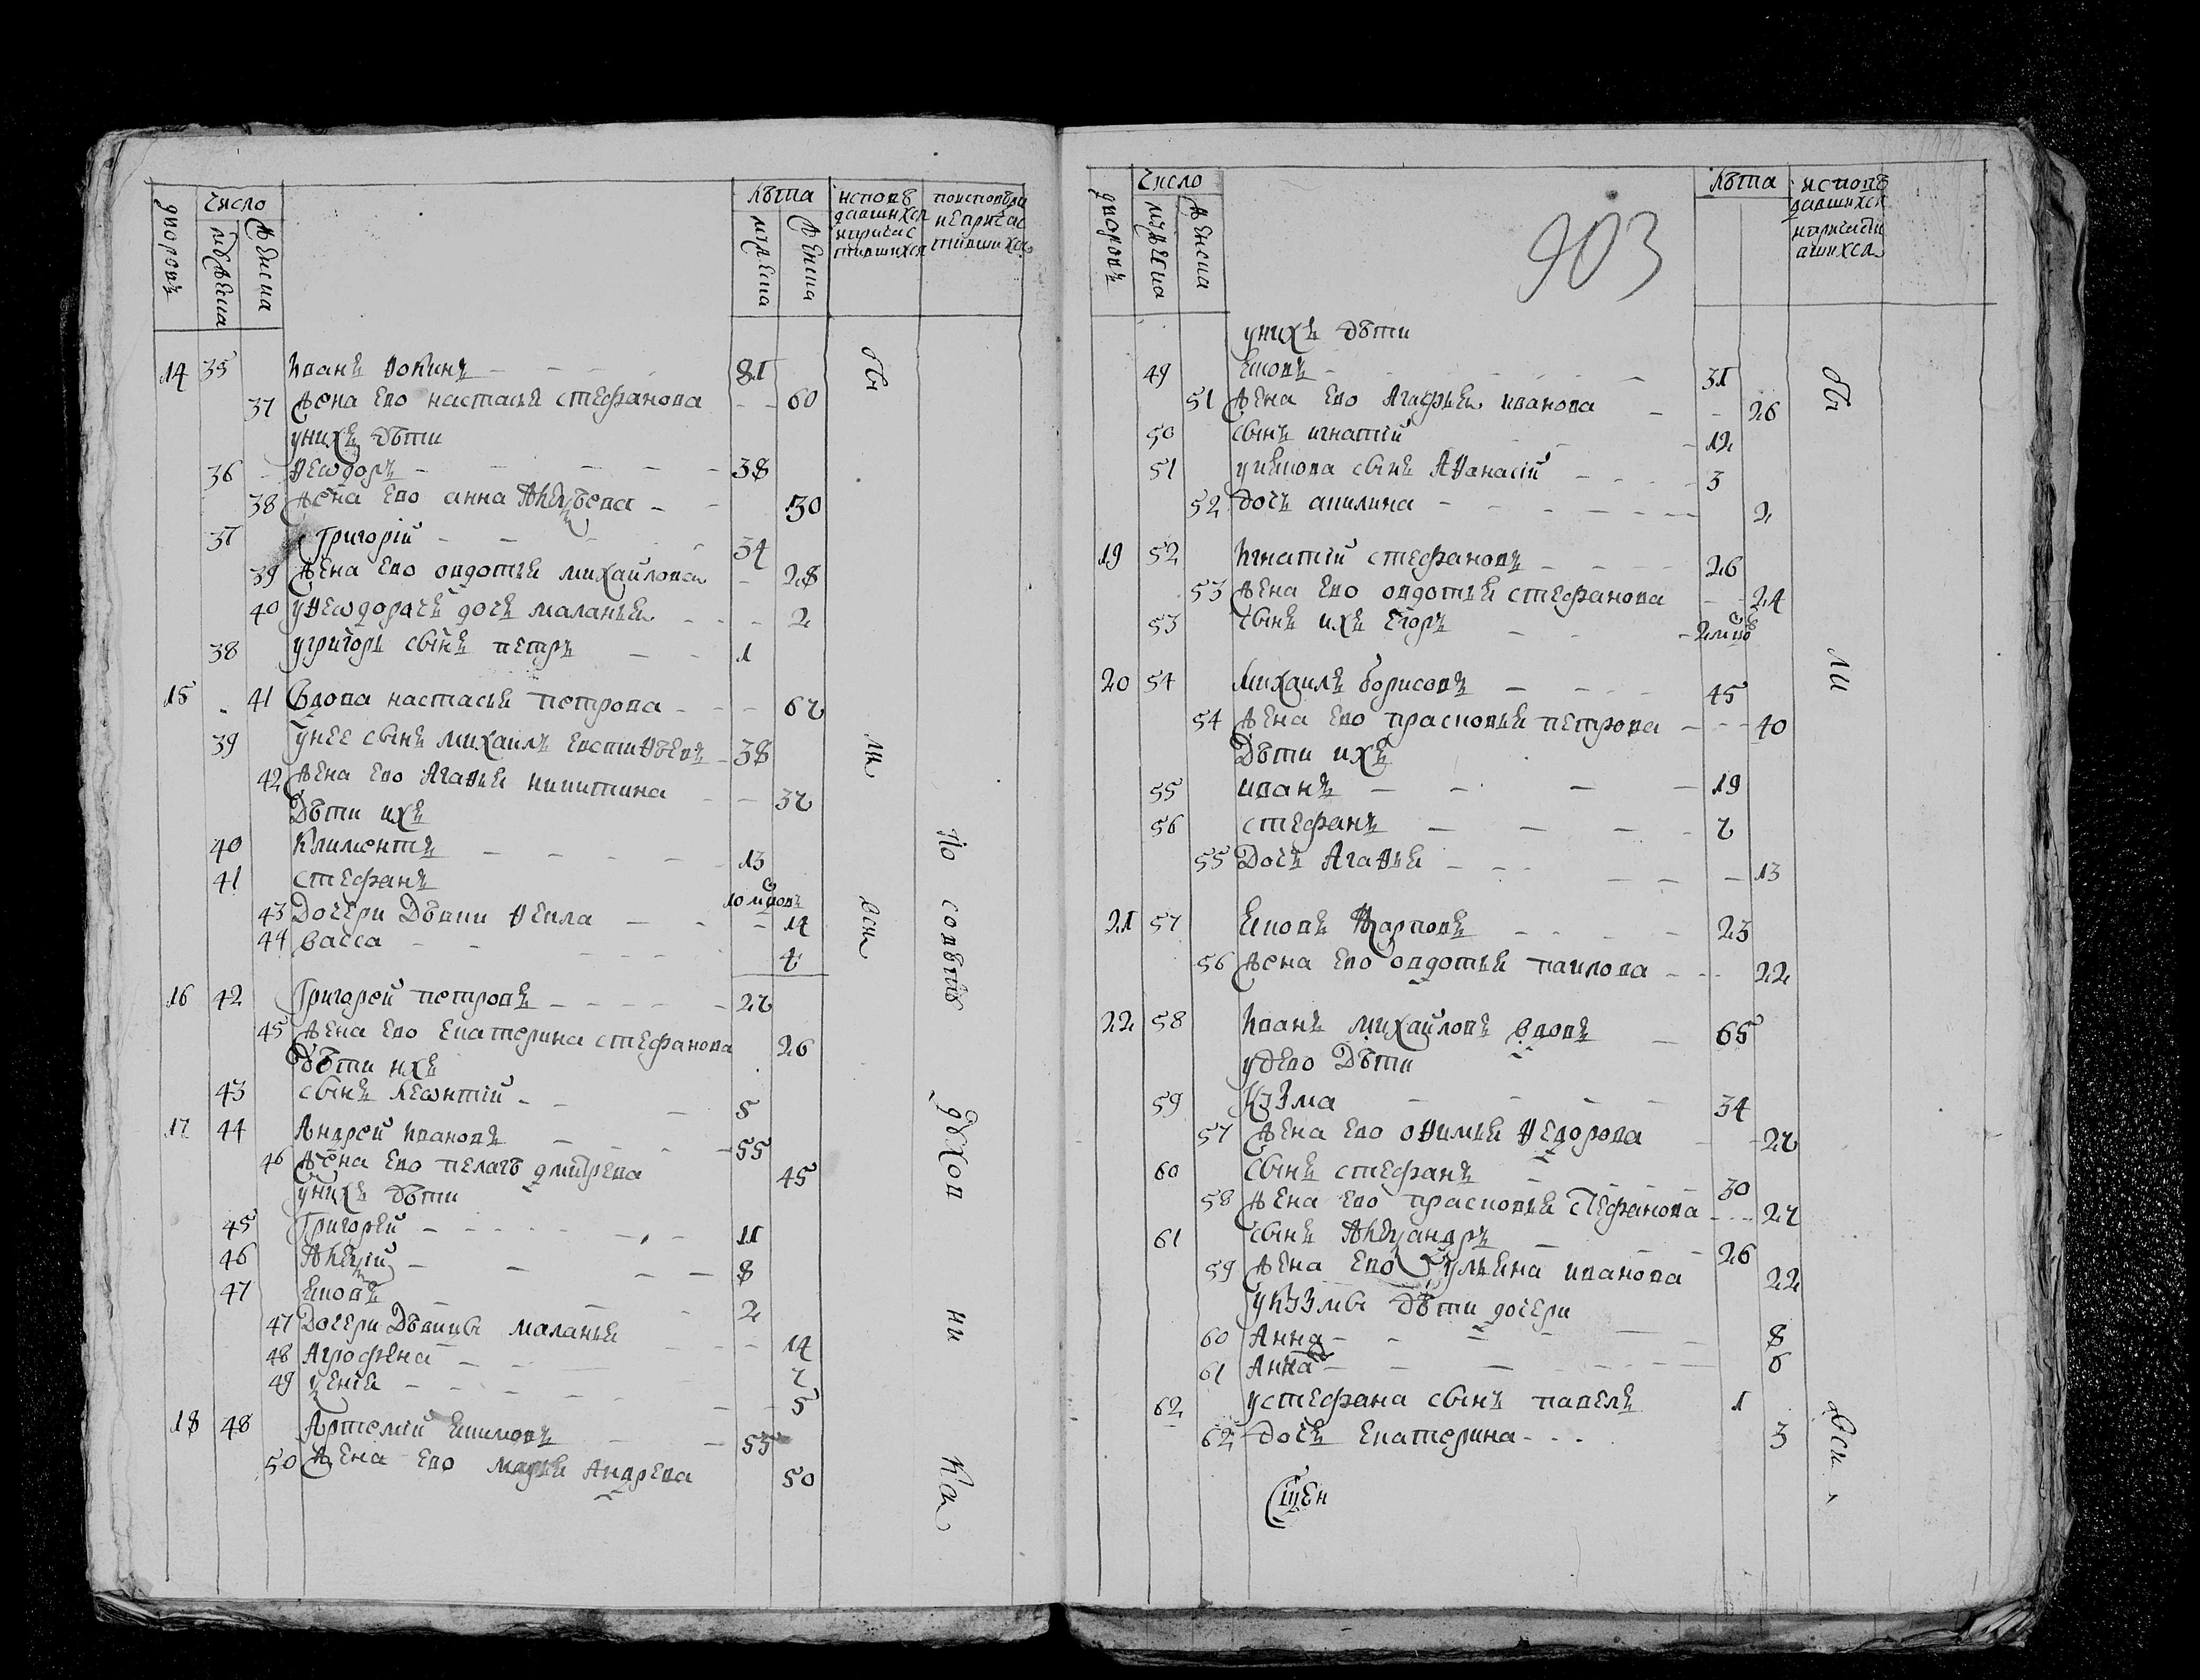 дворовъ
число
мужеска
женска
лѣта
мужеска
женска
исповѣ
давшихся
ипричас
тившихся
поисповѣди
непричас
тившихся
14 35 Иванъ Фокинъ 81
37 жена ево настасья стефанова 60
унихъ дѣти
36 Феѡдоръ 38
38 жена ево анна 30
37 Григорій 34
39 жена ево овдотья михайлова 28
40 уФеѡдора дочь маланья 2
38 угригорь сынъ петръ 1
15 41 Вдова настасья петрова 67
39 унее сынъ михаилъ евстифѣевъ 38
42 жена ево Агафья никитина 37
Дѣти ихъ
40 Климентъ 13
41 стефанъ 10 мцовъ
43 Дочери Дѣвки Фекла 14
44 васса 7
16 42 Григорей петровъ 27
45 жена ево Екатерина стефанова 26
дѣти ихъ
43 сынъ Леѡнтій 5
17 44 Андрей Ивановъ 55
46 жена ево пелагѣ дмитрева 45
унихъ дѣти
45 Григорей 11
46 Алеѯій 8
47 Яковъ 2
47 Дочери Дѣвицы маланья 14
48 Агрофена 7
49 ѯенія 5
18 48 Артемій Якимовъ 55
50 жена ево марья Андрева 50
бы
ли
вси
по совѣту духов ни ка
дворовъ
число
мужеска
женска
903
лѣта
исповѣ
давшихся
ипричасти
вшихся
унихъ дѣти
49 Яковъ 31
51 жена ево Агафья иванова 26
50 сынъ игнатій 12
51 уиякова сынъ Афанасій 3
52 дочь акилина 2
19 52 Игнатій стефановъ 26
53 жена ево овдотья стефанова 24
53 сынъ ихъ Егоръ 2 мцов
20 54 Михаилъ борисовъ 45
54 жена ево прасковья петрова 40
Дѣти ихъ
55 иванъ 19
56 стефанъ 7
55 Дочь Агафья 13
21 57 Яковъ Карповъ 23
56 жена ево овдотья павлова 22
22 58 Иванъ михайловъ вдовъ 65
удево Дѣти
59 Кузма 34
57 жена ево офимья Федорова 27
60 сынъ стефанъ 30
58 жена ево прасковья стефанова 27
61 сынъ Алеѯандръ 26
59 жена ево ульяна иванова 22
укузмы дѣти дочери
60 Анна 8
61 Анна 6
62 устефана сынъ павелъ 1
62 дочь Екатерина 3
бы
ли
вси
Сщен